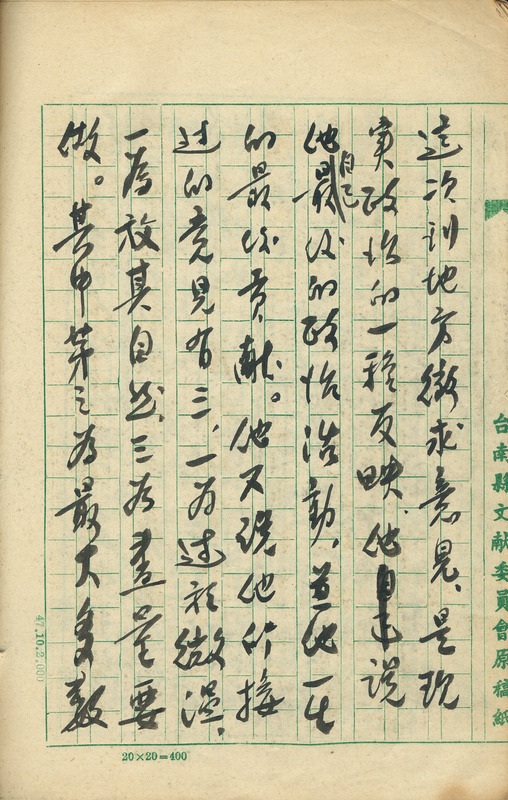 這次到地方徵求意見、是現
實政治的一種反映、他說
他自己最後的政治活動、是他一生
的最後貢獻。他又說他所接
过的意見有三、一为过於微溫、
一為放其自然、三为盡量要
做。其中第三为最大多數
台南縣文献委員會原稿紙
47.10.2,000
20×20=400